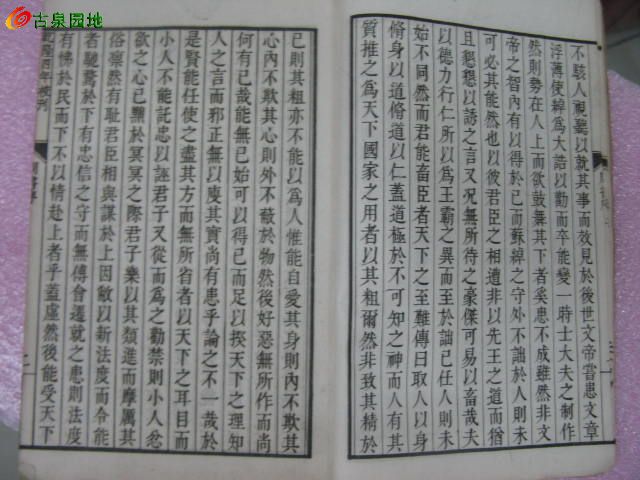 古泉园地
不駭人視聽以就其事而效見於後世文帝嘗患文章
浮薄使綽爲大誥以勸而卒能變一時士大夫之制作
然則勢在人上而欲鼓舞其下者奚患不成雖然非文
帝之智內有以得於己而蘇綽之守外不詘於人則未
必其能然也以彼君臣之相遭非以先王之道而猶
且懇懇以誘之言又況無所待之豪傑可易以畜哉夫
以德力行仁所以爲王霸之異而至於詘己任人則未
始不同然而君能畜臣者天下之至難傳曰取人以身
脩身以道脩道以仁蓋道極於不可知之神而人有其
質推之爲天下國家之用者以其粗爾然非致其精於
己則其粗亦不能以爲人惟能自愛其身則內不欺其
心內不欺其心則外不蔽於物然後好惡無所作而尚
何有已哉能無已始可以得已而足以揆天下之理知
人之言而邪正無以廋其實尚有患乎論之不一哉於
是賢能任使之盡其方而無所省者以天下之耳目而
小人不能託忠以誣君子又從而爲之勸禁則小人忿
欲之心已黜於冥冥之際君子樂以其類進而摩厲其
俗凜然有恥君臣相與謀於上因敝以新法度而令能
者馳騖於下有忠信之守而無傅會遷就之患則法度
有怫於民而下不以情赴上者乎蓋慮然後能受天下
乾隆四年校刊
二